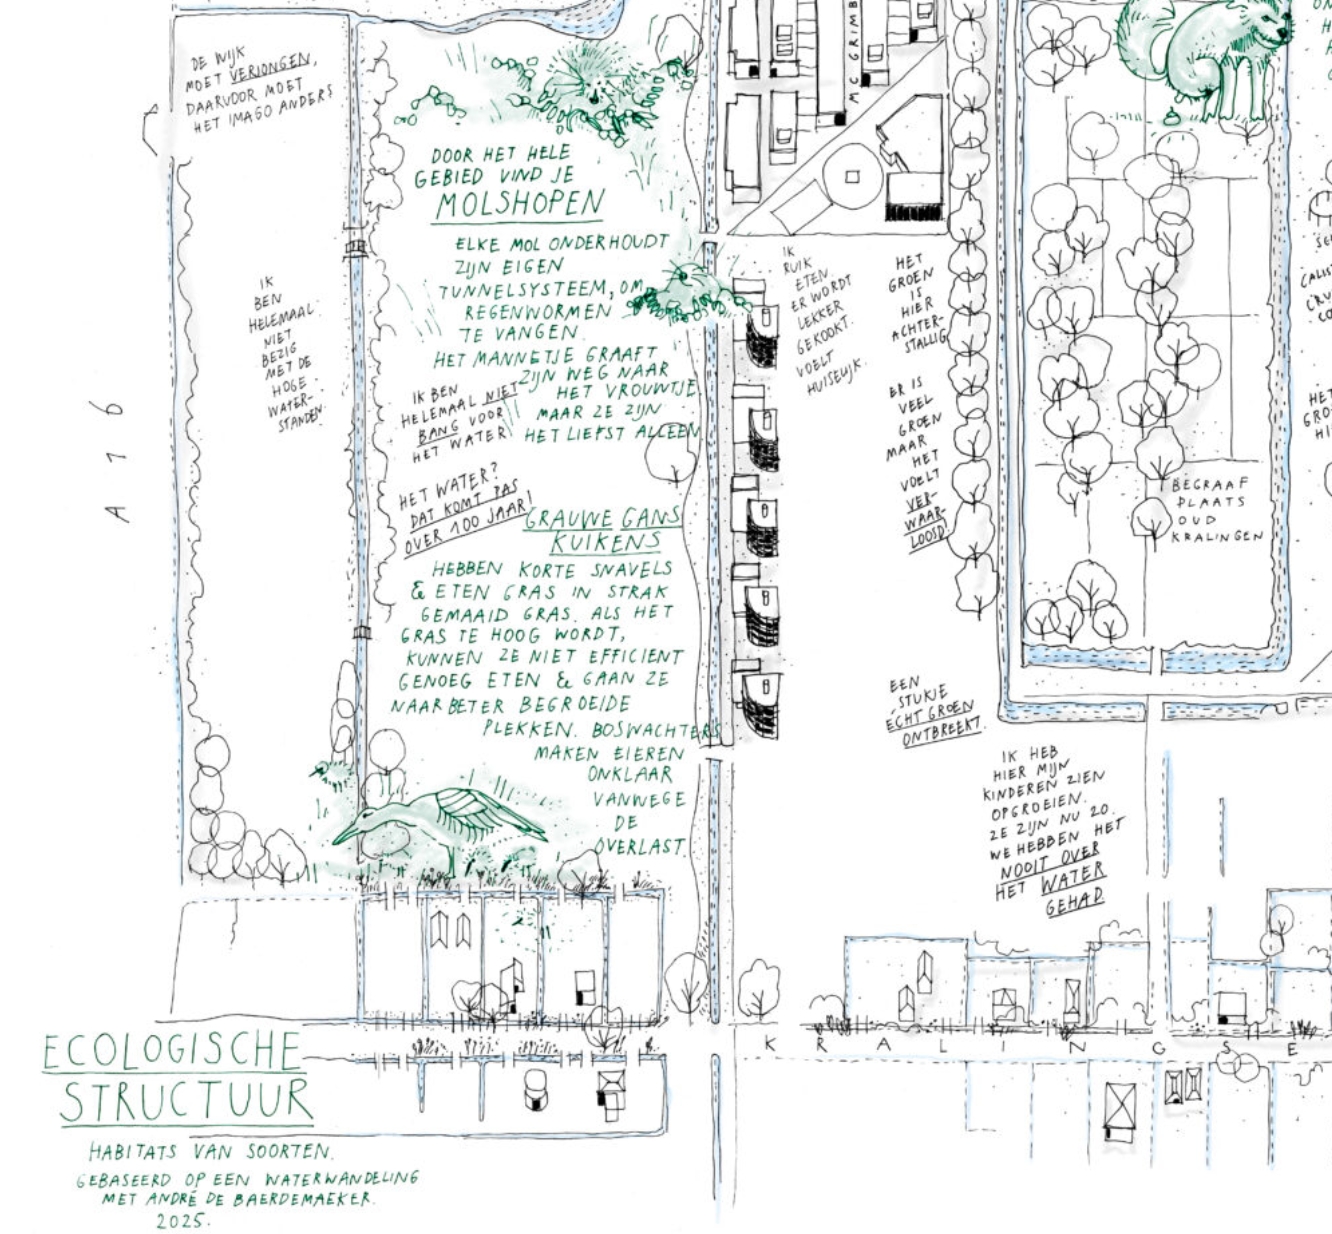 DE WIJK
MOET VERJONGEN,
DAARVOOR MOET
HET IMAGO ANDERS
IK
BEN
HELEMAAL
NIET
BEZIG
MET DE
HOGE
WATER-
STANDEN.
A 16
DOOR HET HELE
GEBIED VIND JE
MOLSHOPEN
ELKE MOL ONDERHOUDT
ZIJN EIGEN
TUNNELSYSTEEM, OM
REGENWORMEN
TE VANGEN.
HET MANNETJE GRAAFT
ZIJN WEG NAAR
HET VROUWTJE
MAAR ZE ZIJN
HET LIEFST ALLEEN
IK BEN
HELEMAAL NIET
BANG VOOR
HET WATER
HET WATER?
DAT KOMT PAS
OVER 100 JAAR!
GRAUWE GANS
KUIKENS
HEBBEN KORTE SNAVELS
& ETEN GRAS IN STRAK
GEMAAID GRAS. ALS HET
GRAS TE HOOG WORDT,
KUNNEN ZE NIET EFFICIENT
GENOEG ETEN & GAAN ZE
NAAR BETER BEGROEIDE
PLEKKEN. BOSWACHTERS
MAKEN EIEREN
ONKLAAR
VANWEGE
DE
OVERLAST.
MC GRIMB
IK
RUIK
ETEN.
ER WORDT
LEKKER
GEKOOKT.
VOELT
HUISELIJK.
HET
GROEN
IS
HIER
ACHTER-
STALLIG
ER IS
VEEL
GROEN
MAAR
HET
VOELT
VER-
WAAR-
LOOSD.
BEGRAAF
PLAATS
OUD
KRALINGEN
EEN
STUKJE
ECHT GROEN
ONTBREEKT.
IK HEB
HIER MIJN
KINDEREN ZIEN
OPGROEIEN.
ZE ZIJN NU 20.
WE HEBBEN HET
NOOIT OVER
HET WATER
GEHAD.
KRALINGSE
HET
GRO
HI
ECOLOGISCHE
STRUCTUUR
HABITATS VAN SOORTEN.
GEBASEERD OP EEN WATERWANDELING
MET ANDRÉ DE BAERDEMAEKER.
2025.